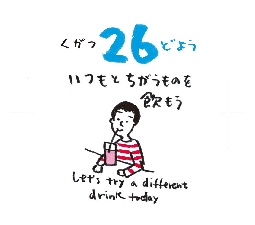 くがつ 26 どよう
いつもとちがうものを
飲もう
Let's try a different
drink today